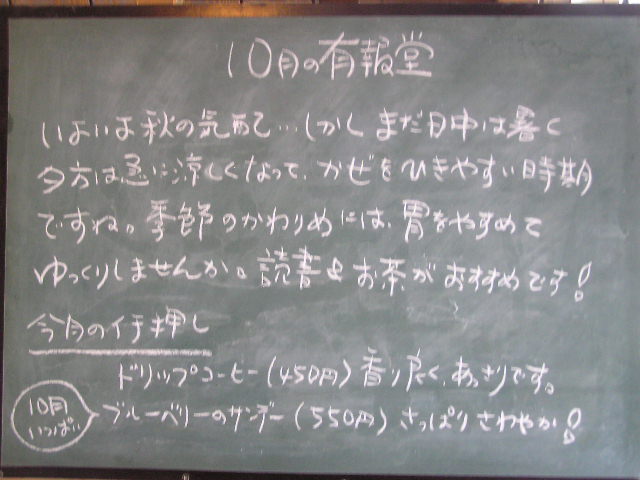 10月の有報堂
いよいよ秋の気配…しかしまだ日中は暑く
夕方は急に涼しくなって、かぜをひきやすい時期
ですね。季節のかわりめには、胃をやすめて
ゆっくりしませんか。読書とお茶がおすすめです!
今月のイチ押し
ドリップコーヒー(450円)香り良く、あっさりです。
10月
いっぱい
ブルーベリーのサンデー(550円)さっぱりさわやか!